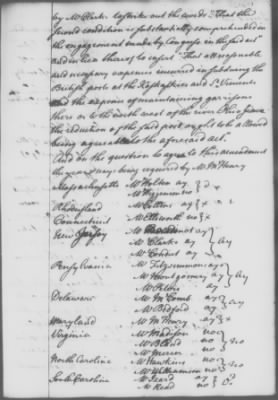 by Mr Clark. to strike out the words "That the
second condition is substantially comprehended in
the engagement made by Congress in the said
and in lieu thereof to insert "That all reasonable
and necessary expences incurred in subduing the
British posts at the Kaskaskies and St Vincents
and the expence of maintaining garrisons
there or to the north west of the river Ohio since
the reduction of the said posts ought to be allowed
being agreeable to the aforesaid act."
And on the question to agree to this amendment
the yeas & nays being required by Mr McHenry
Massachusetts Mr Holten ay } d
Mr Higginson no
Rhodeisland Mr Collins ay } x
Connecticut Mr Ellsworth no } x
New Jersey Mr Boudinot ay
Mr Clarke ay } ay
Mr Condict ay
Pensylvania Mr Fitzsimmons ay
Mr Montgomery ay } ay
Mr Peters ay
Delaware Mr McComb ay } ay
Mr Bedford ay
Maryland Mr McHenry ay } x
Virginia Mr Madison no
Mr Bland no } no
Mr Mercer no
North Carolina Mr Hawkins no } no
Mr Williamson no
South Carolina Mr Izard ay } d.
Mr Read no